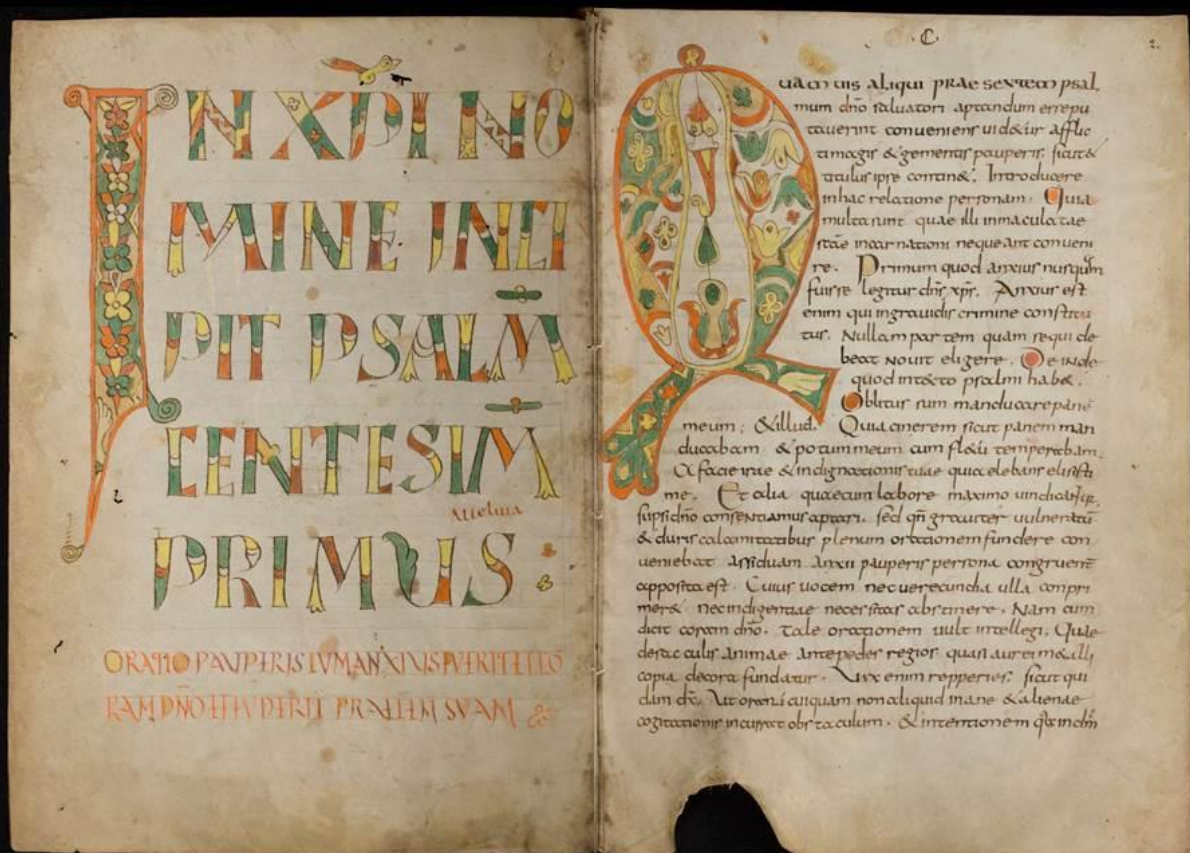 IN XPI NO
MINE INCI
PIT PSALM
CENTESIM
Alleluia
PRIMUS
ORATIO PAUPERIS CUM ANXIUS FUERIT ET CO
RAM DNO EFFUDERIT PRAECEM SUAM
C
2.
QUAMVIS ALIQUI PRAE SEXTEM PSAL
mum dño saluatori aptandum errepu
tauerint conueniens uidetur afflic
timagis & gementis pauperis; sicut&
titulus ipse contin&. Introducere
in hac relatione personam. Quia
multa sunt quae illi inmaculatae
scae incarnationi nequeant conueni
re. Primum quod anxius nusquam
fuisse legitur dns xps. Anxius est
enim qui in grauidis crimine constitu
tus. Nullam partem quam sequi de
beat nouit eligere. Deinde
quod in psalmi habe&.
Oblitus sum manducare pane
meum; &illud. Quia cinerem sicut panem man
ducabam & potum meum cum fl&u temperabam.
A facie irae & indignationis tuae quia elebans elisisti
me. Et alia quae cum labore maximo
dño consentiamus aptari. sed qñ grauiter uulneratu
& duris calamitatibus plenum orationem fundere con
ueniebat assiduam anxii pauperis persona congruent
apposita est. Cuius uocem nec uerecundia ulla conpri
mer& nec indigentiae necessitas abstinere. Nam cum
dicit coram dño. Tale orationem uult intellegi. Quae
culis animae ante pedes regios quasi aurei m&alli
copia decora fundatur. enim repperies; sicut qui
dam dx. Ut orani cuiquam non aliquid inane & alienae
cogitationis incurrat obstaculum. & intentionem